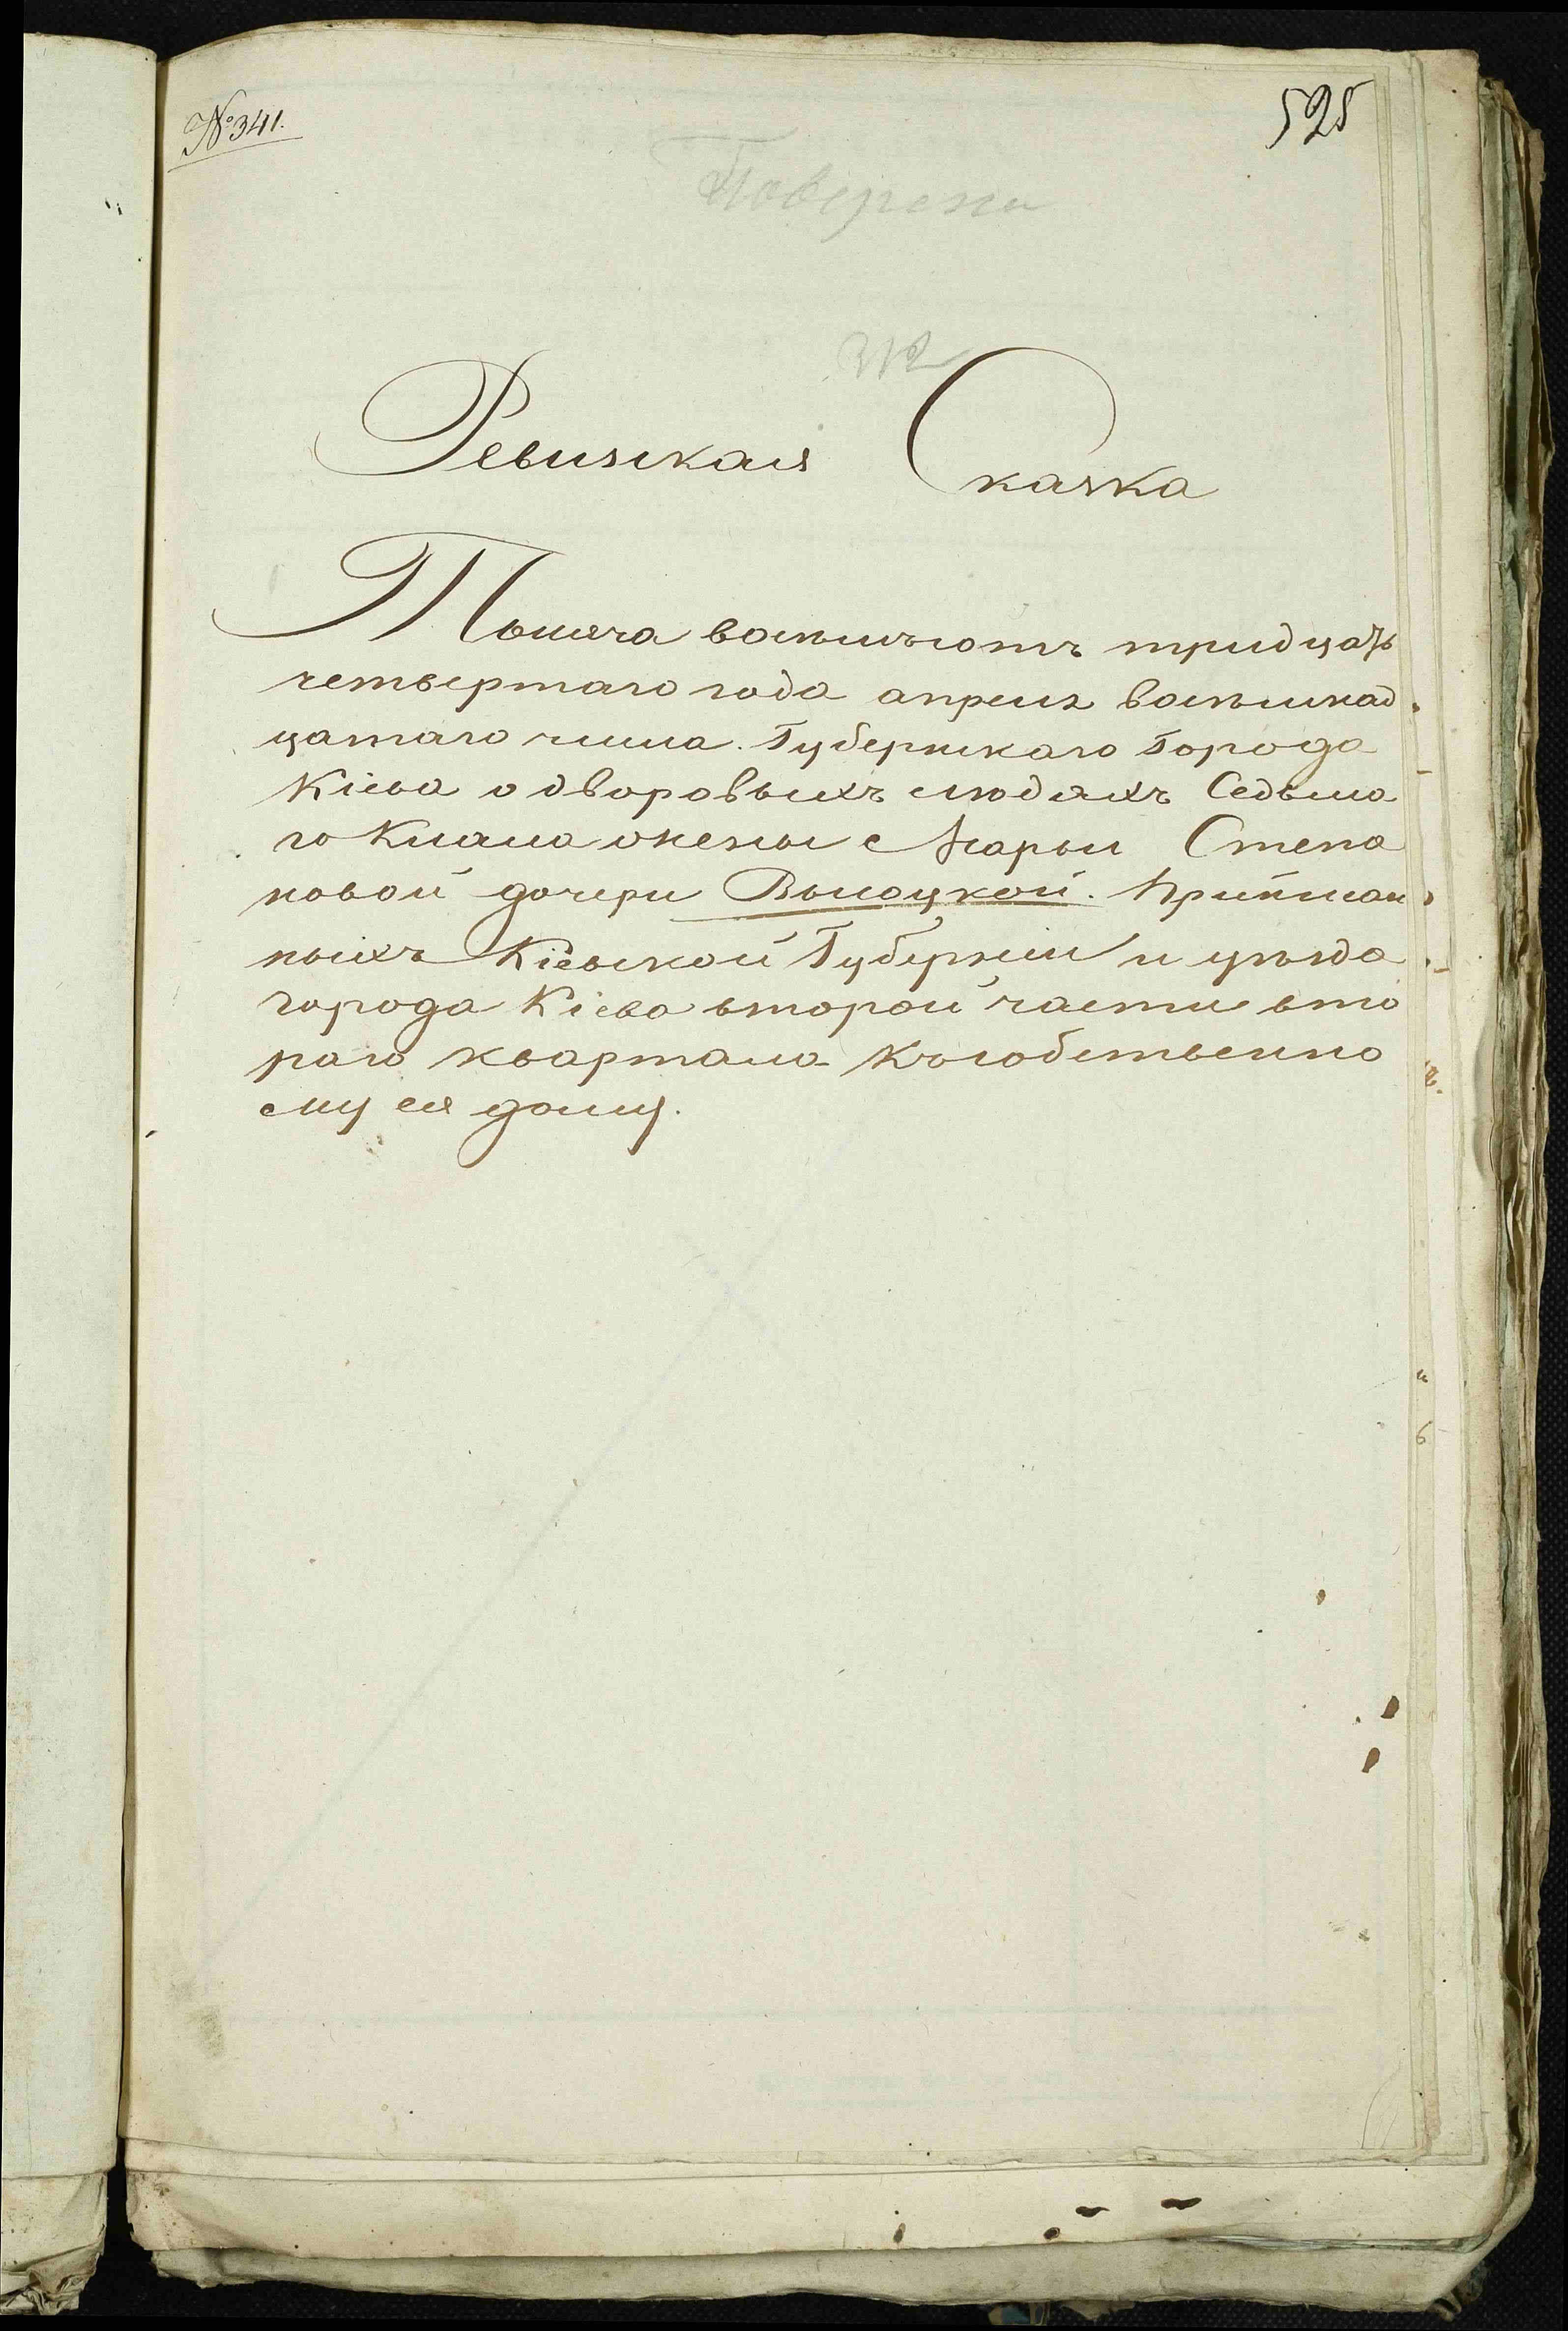 № 341.
525
Поверена
312
Ревизская Сказка
Тысяча восемьсотъ тридцать
четвертаго года апреля восемнад
цатаго числа. Губернскаго Города
Кіева о дворовыхъ людяхъ Седьма
го Класа жены Марьи Степа
новой дочери Высоцкой. Приписан
ныхъ Кіевской Губерніи и уезда
города Кіева второй части вто
раго квартала къ собственно
му ея дому.